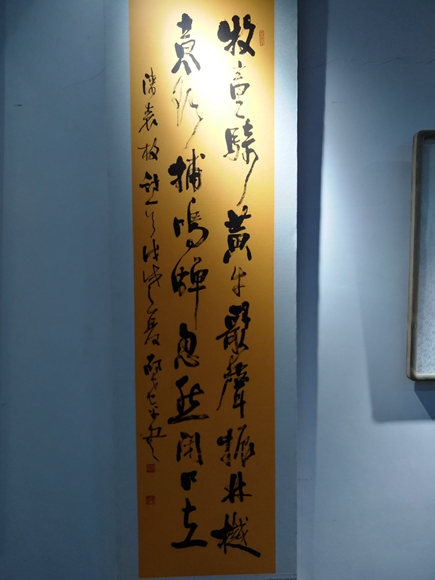 牧童騎黄牛歌聲振林樾
意欲捕鳴蟬忽然閉口立
清袁枚詩一首戊戌夏